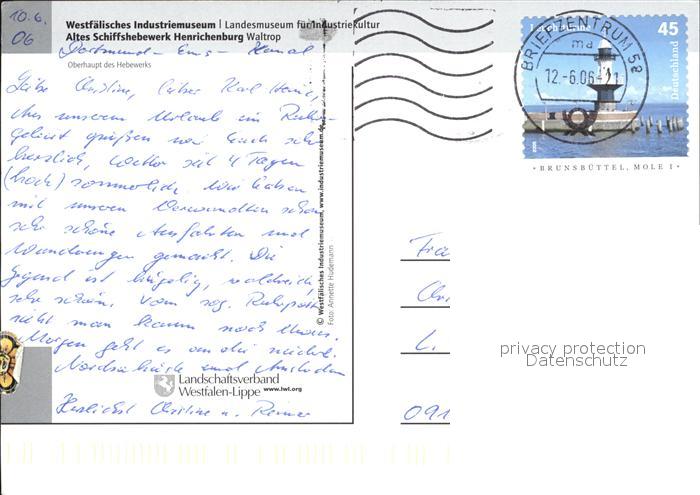 10.6.
06
Westfälisches Industriemuseum | Landesmuseum für Industriekultur
Altes Schiffshebewerk Henrichenburg Waltrop
Dortmund - Ems - Kanal
Oberhaupt des Hebewerks
Liebe Christine, lieber Karl Heinz,
Aus unserem Urlaub im Ruhr-
gebiet grüßen wir Euch sehr
herzlich, Wetter seit 4 Tagen
(hoch) sommerlich. Wir haben
mit unseren Verwandten schon
sehr schöne Ausfahrten und
Wanderungen gemacht. Die
Gegend ist hügelig, waldreich
sehr schön. Vom sog. Ruhrpott
sieht man kaum noch etwas.
Morgen geht es an die
Nordseeküste und Amsterdam
Herzlichst Christine u.
Landschaftsverband
Westfalen-Lippe www.lwl.org
© Westfälisches Industriemuseum, www.industriemuseum.de
Foto: Annette Hudemann
BRIEFZENTRUM 58
md
12.-6.06
45
Deutschland
BRUNSBÜTTEL, MOLE 1
Fra
Chr
L.
091
privacy protection
Datenschutz